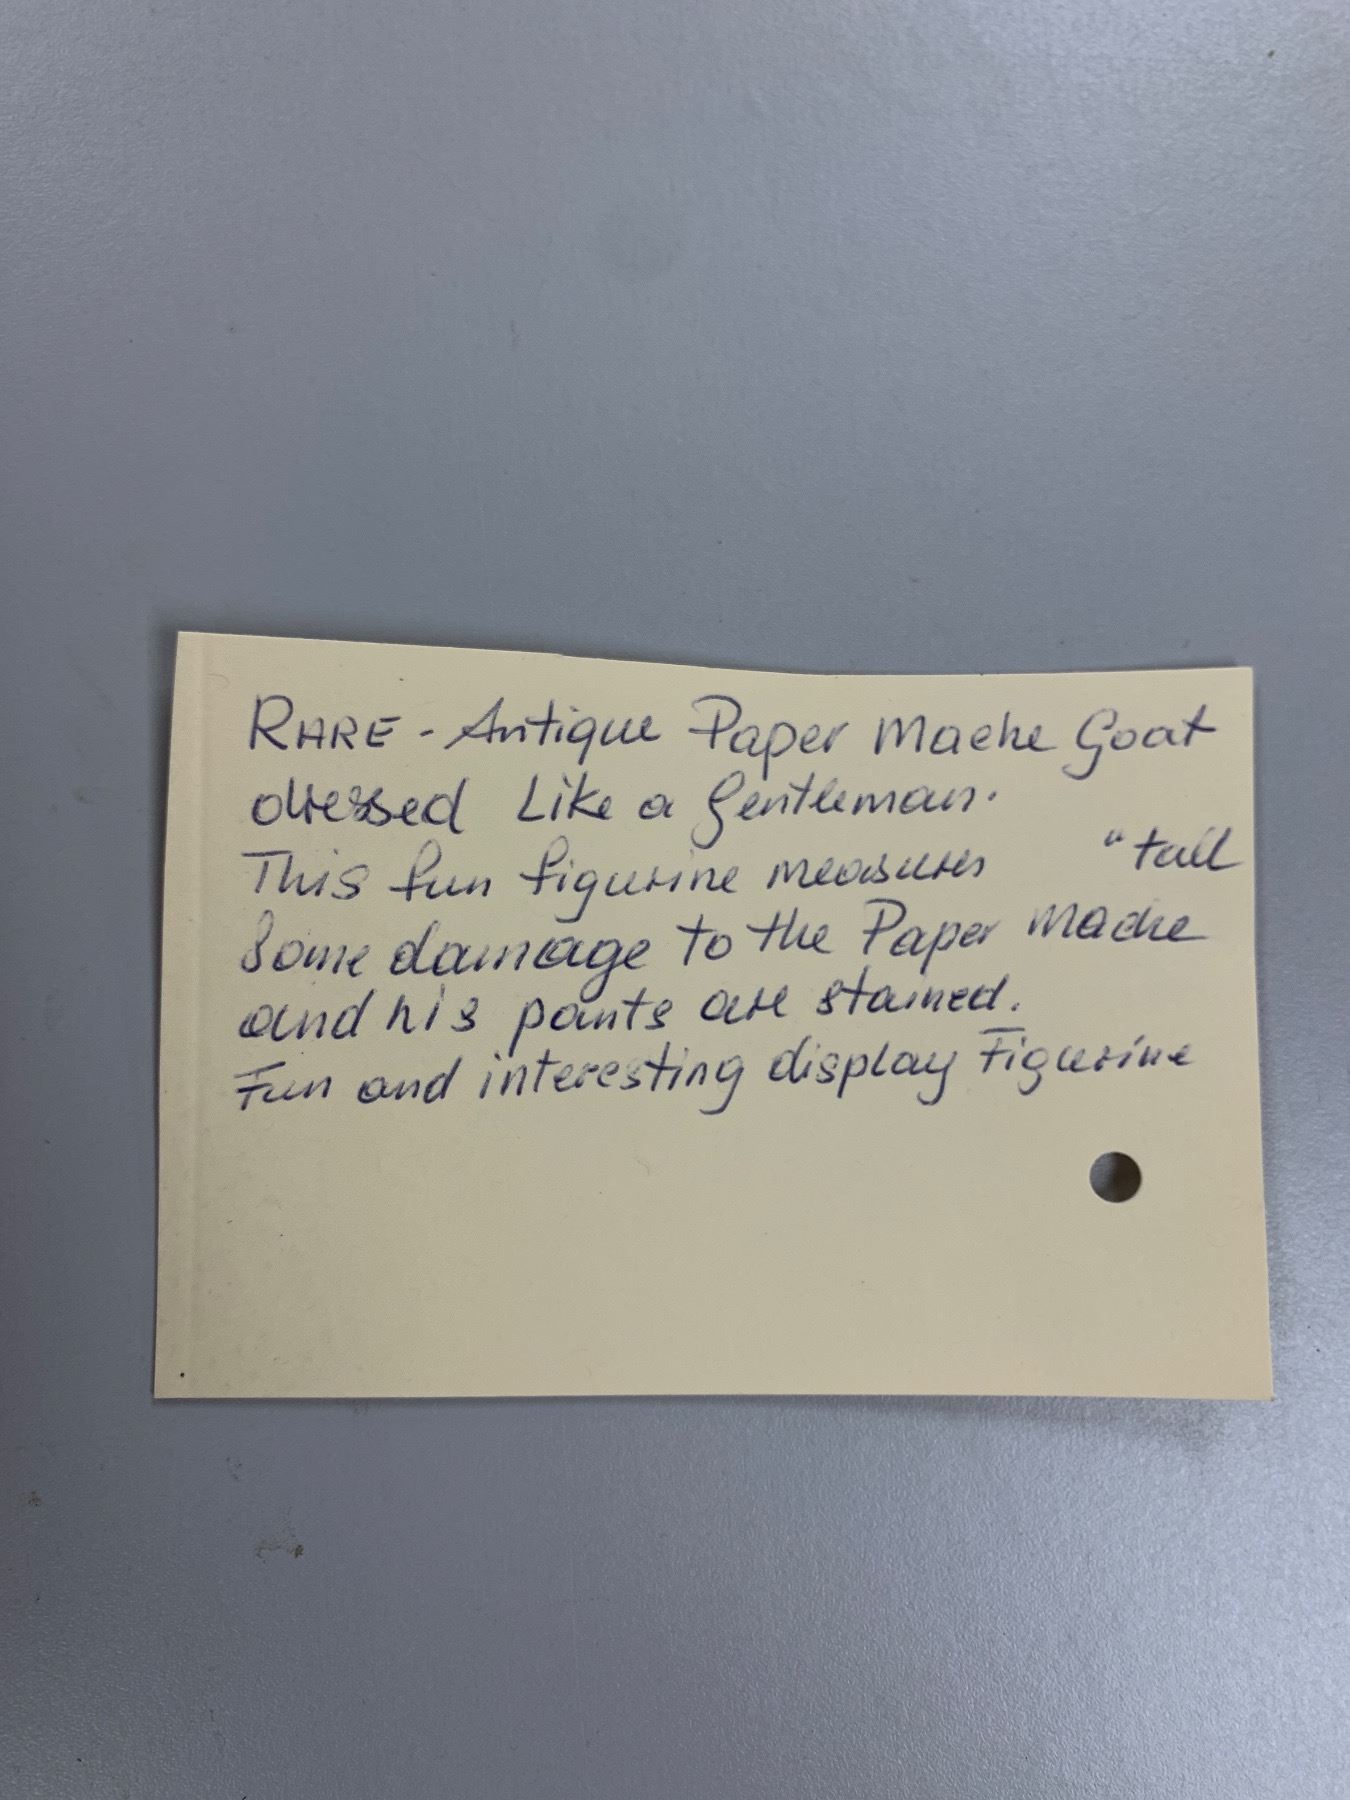 RARE - Antique Paper Mache Goat
dressed Like a Gentleman.
This fun figurine measures " tall
Some damage to the Paper Mache
and his pants are stained.
Fun and interesting display Figurine